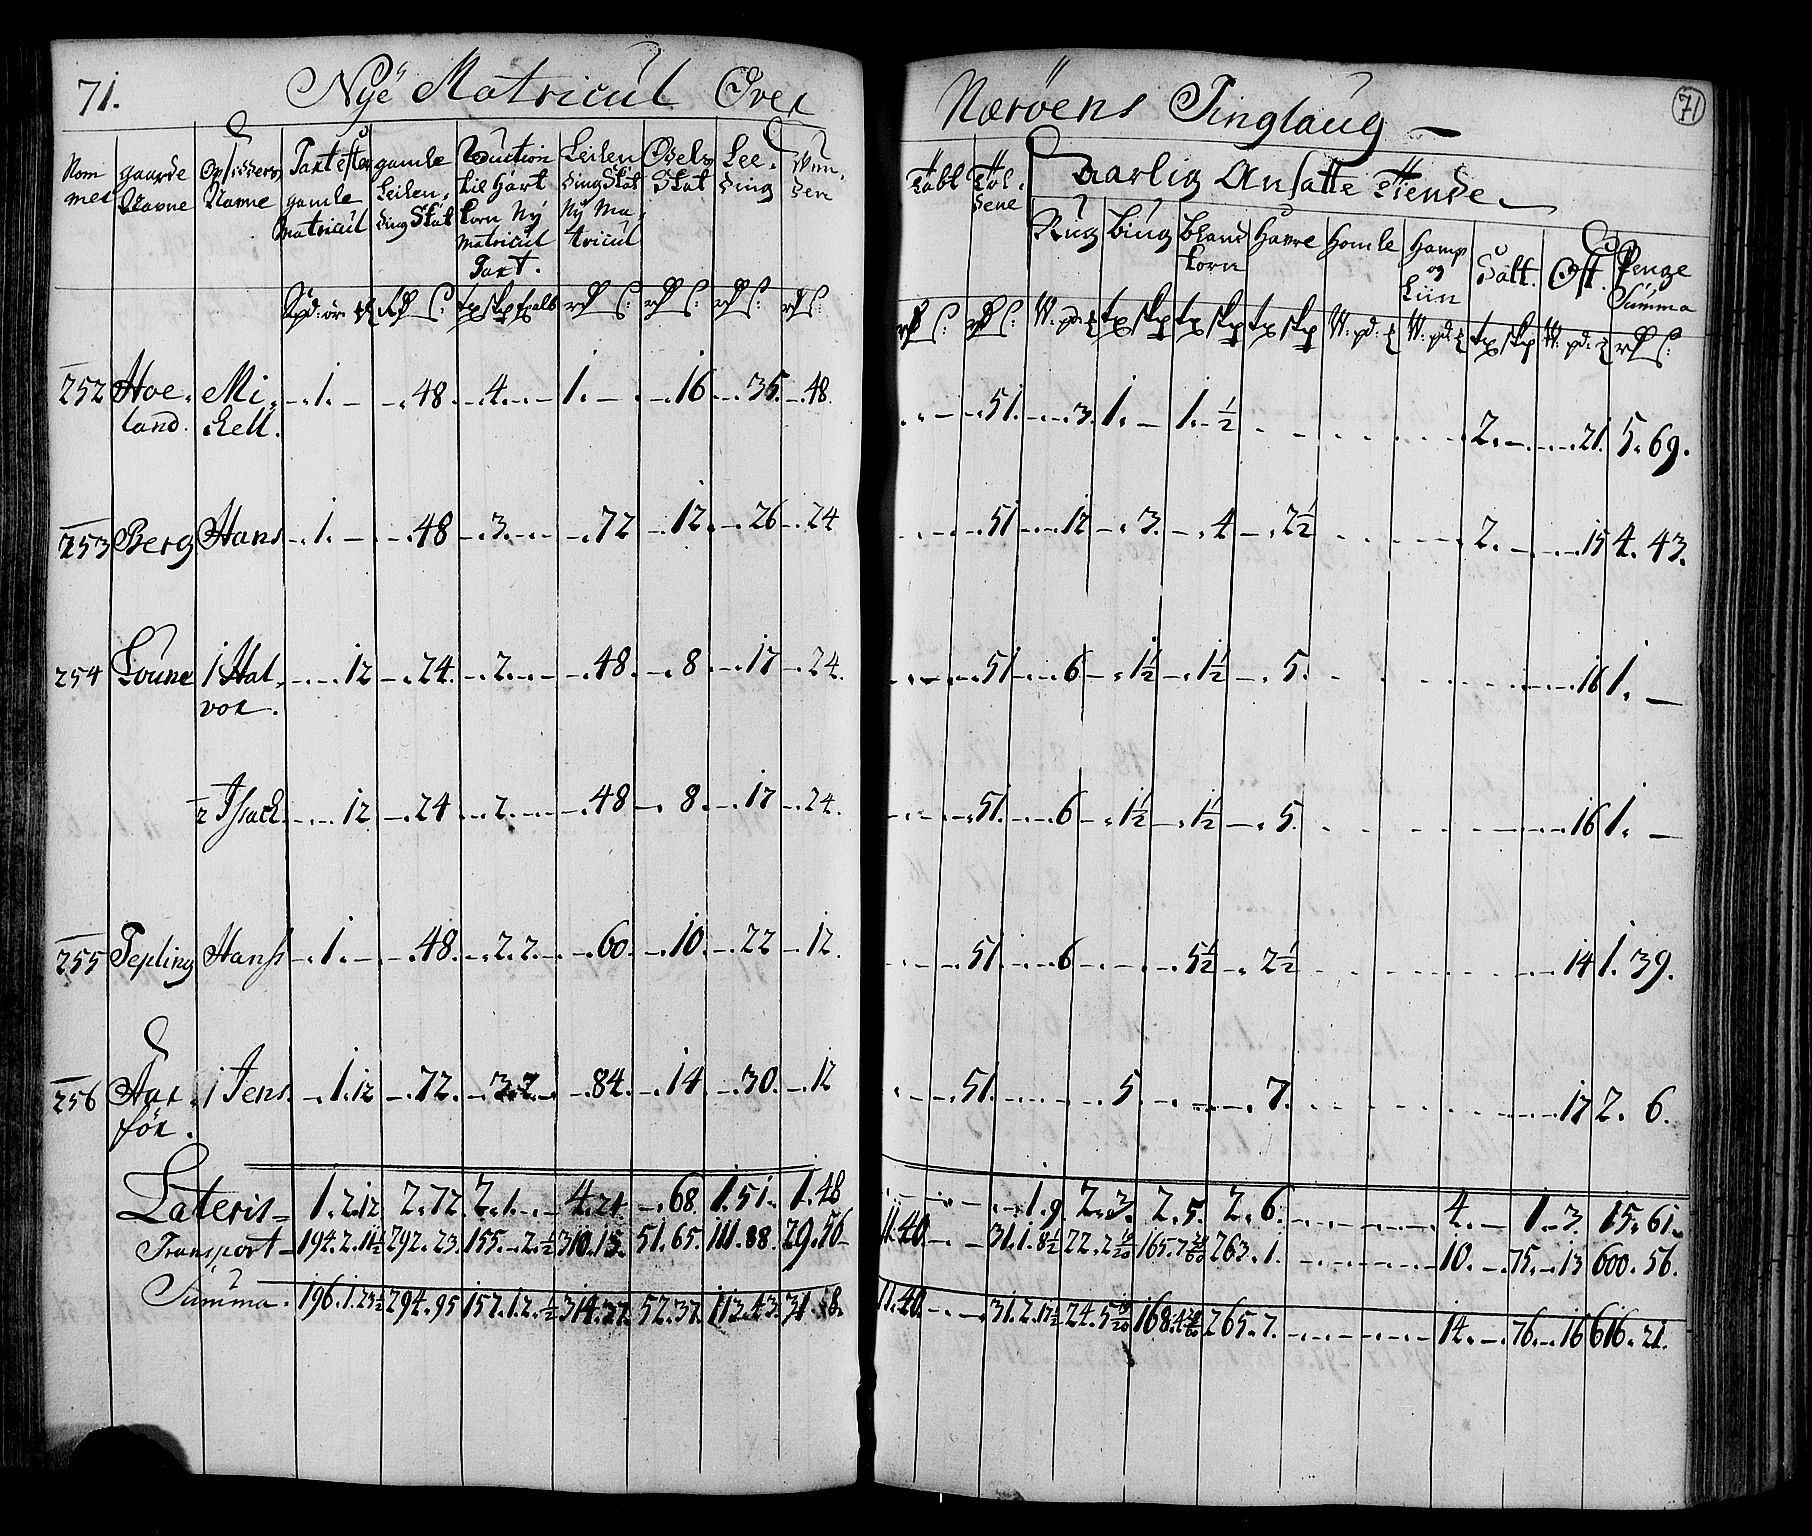 71. Nye Matricul Over Nærøens Tinglaug 71
Nom mer | gaarde Navne | Opsidders Navne | Taxt efter gamle Matricul | gamle Leilen, ding Skat | Reduction til Hart korn Ny matricul Taxt. | Leilen ding Skat Ny Ma, tricul | Odels Skat | Lee, ding
Daarlig Ansatte Tiende
Rug | Biug | Bland korn | Havre | Homle | Hamp og Liin | Salt. | Ost. | Penge Summa
252 Hoe, land. Mi, chell. 1. 48. 4. 1. 16 35. 48. 51. 3. 1. 1. ½ 2. 21. 5. 69.
253 Berg Hans 1. 48 3. 72 12. 26 24 51 12 3. 4 2½ 2. 15 4. 43.
254 Loune 1 Hal, vor. 12 24. 2. 48. 8. 17 24. 51 6 1½ 1½ 5. 16 1.
2 Isach. 12 24 2. 48 8. 17 24. 51. 6 1½ 1½ 5. 16 1.
255 Tepling Hans 1. 48. 2. 2. 60. 10. 22 12. 51. 6 5½ 2½ 14 1. 39.
256 Aar, sör. 1 Jens. 1. 12 72. 3. 2. 84. 14 30. 12 51. 5. 7. 17 2. 6.
Lateris 1. 2. 12 2. 72. 2. 1. 4. 24. 68. 1. 51. 1. 48 1. 9 2. 3. 2. 5. 2. 6. 4. 1. 3. 15. 61.
Transport 194. 2. 11½ 292. 23. 155. 2. ½ 310. 13. 51. 65. 111. 88. 29. 56 11. 40. 31. 1. 8½ 22. 2 165. 7 263. 1. 10. 75. 13 600. 56.
Summa. 196. 1. 23½ 294. 95 157. 1. 2. ½ 314. 37. 52. 37. 113. 43. 31. 8. 11. 40. 31. 2. 17½ 24. 5 168. 4 265. 7. 14. 76. 16 616. 21.